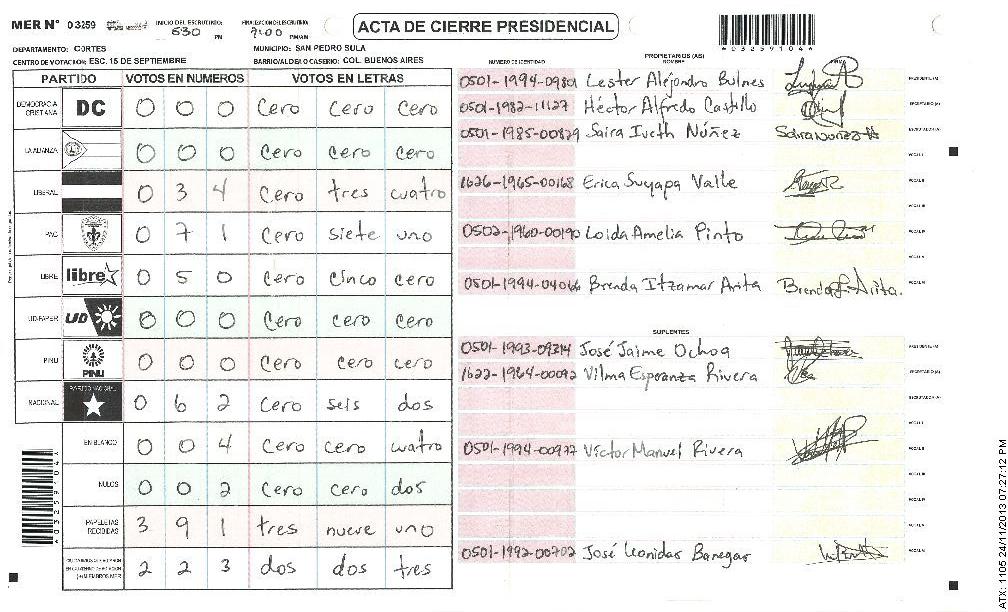 MER N° 03259 INICIO DEL ESCRUTINIO: 630 PM FINALIZACION DEL ESCRUTINIO: 7:00 PM/AM ACTA DE CIERRE PRESIDENCIAL
DEPARTAMENTO: CORTES MUNICIPIO: SAN PEDRO SULA
CENTRO DE VOTACION: ESC. 15 DE SEPTIEMBRE BARRIO/ALDEA O CASERIO: COL. BUENOS AIRES
PARTIDO VOTOS EN NUMEROS VOTOS EN LETRAS
DEMOCRACIA CRISTIANA DC 0 0 0 Cero Cero Cero
LA ALIANZA 0 0 0 Cero cero cero
LIBERAL 0 3 4 Cero tres cuatro
PAC 0 7 1 Cero siete uno
LIBRE libre 0 5 0 Cero cinco cero
UD-FAPER UD 0 0 0 Cero cero cero
PINU PINU 0 0 0 Cero cero cero
NACIONAL PARTIDO NACIONAL 0 6 2 Cero seis dos
EN BLANCO 0 0 4 Cero cero cuatro
NULOS 0 0 2 Cero cero dos
PAPELETAS RECIBIDAS 3 9 1 tres nueve uno
2 2 3 dos dos tres
03259104
NUMERO DE IDENTIDAD PROPIETARIOS (AS) NOMBRE FIRMA
0501-1994-09801 Lester Alejandro Bulnes PRESIDENTE (A)
0501-1982-11127 Héctor Alfredo Castillo SECRETARIO (A)
0501-1985-00829 Saira Iveth Núñez ESCRUTADOR (A)
VOCAL I
1626-1965-00168 Erica Suyapa Valle VOCAL II
VOCAL III
0502-1960-00190 Loida Amelia Pinto VOCAL IV
VOCAL V
0501-1994-04066 Brenda Itzamar Arita Brenda I. Arita. VOCAL VI
SUPLENTES
0501-1993-09314 José Jaime Ochoa PRESIDENTE (A)
1622-1964-00092 Vilma Esperanza Rivera SECRETARIO (A)
ESCRUTADOR (A)
VOCAL I
0501-1994-00977 Víctor Manuel Rivera VOCAL II
VOCAL III
VOCAL IV
VOCAL V
0501-1992-00702 José Leonidas Banegas VOCAL VI
03259104
ATX: 1105 24/11/2013 07:27:12 PM